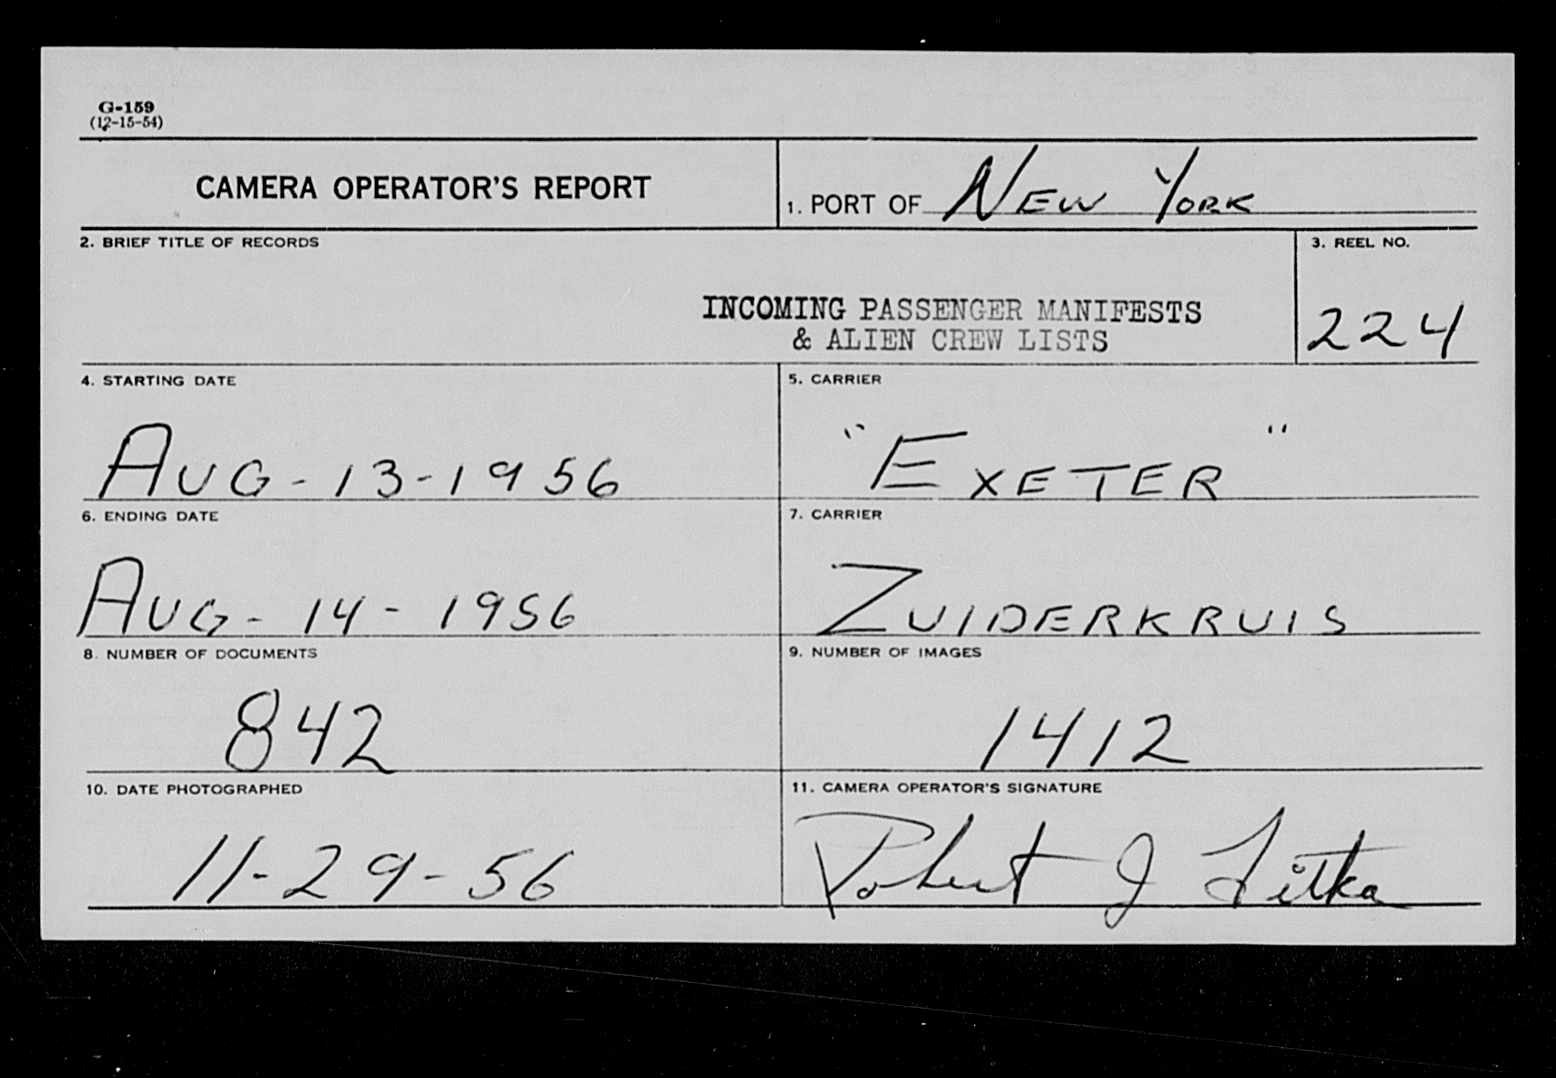 G-159
(12-15-54)
CAMERA OPERATOR'S REPORT
1. PORT OF NEW YORK
2. BRIEF TITLE OF RECORDS
INCOMING PASSENGER MANIFESTS
& ALIEN CREW LISTS
3. REEL NO.
224
4. STARTING DATE
AUG-13-1956
5. CARRIER
"EXETER"
6. ENDING DATE
AUG-14-1956
7. CARRIER
ZUIDERKRUIS
8. NUMBER OF DOCUMENTS
842
9. NUMBER OF IMAGES
1412
10. DATE PHOTOGRAPHED
11-29-56
11. CAMERA OPERATOR'S SIGNATURE
Robert J